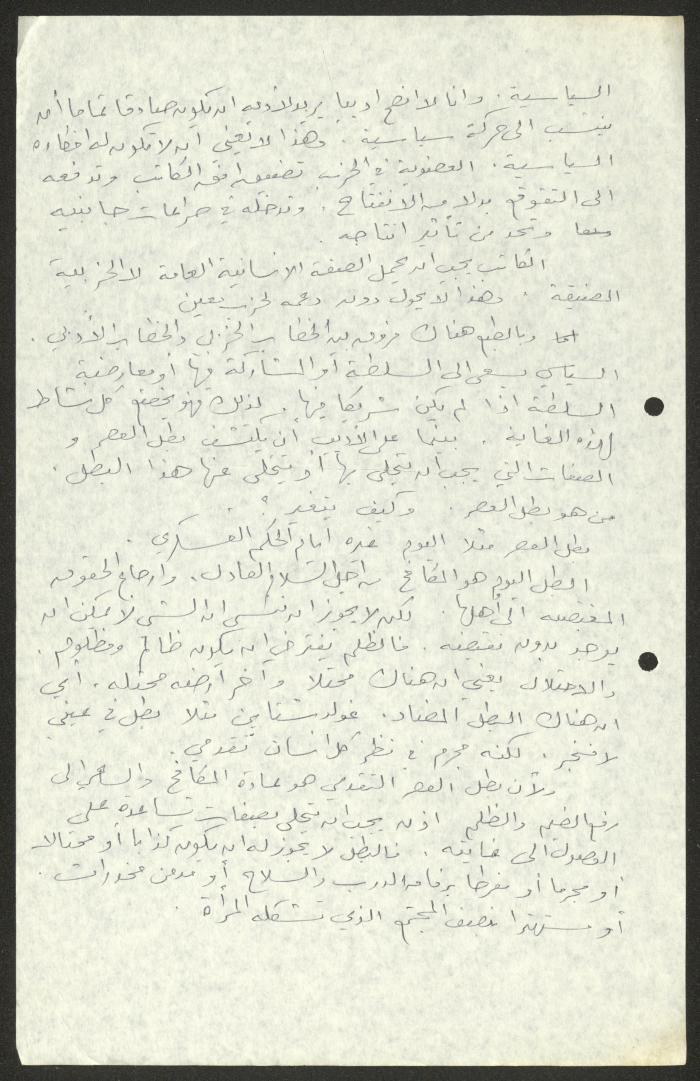 السياسية. وانا لا انصح اديبا يريد لأدبه ان يكون صادقا تماما أن
ينتسب الى حركة سياسية. وهذا لا يعني أن لا تكون له افكاره
السياسية. العضوية في الحزب تضيق افق الكاتب وتدفعه
الى التقوقع بدلا من الانفتاح. وتدخله في صراعات جانبية
وتحد من تأثير انتاجه.
الكاتب يجب ان يحمل الصفة الانسانية العامة لا الحزبية
الضيقة. وهذا لا يحول دون دعمه لحزب معين
وبالطبع هناك فروق بين الخطاب الحزبي والخطاب الأدبي.
السياسي يسعى الى السلطة أو المشاركة فيها أو معارضة
السلطة اذا لم يكن شريكا فيها. لذلك فهو يخضع كل نشاط
لهذه الغاية. بينما على الأديب أن يكتشف بطل العصر و
الصفات التي يجب ان يتحلى بها أو يتخلى عنها هذا البطل.
من هو بطل العصر. وكيف يتغير؟.
بطل العصر مثلا اليوم غيره أمام الحكم العسكري.
البطل اليوم هو المكافح من اجل السلام العادل. وارجاع الحقوق
المغتصبة الى أهلها. لكن لا يجوز ان ننسى ان الشيء لا يمكن ان
يوجد بدون نقيضه. فالظلم يفترض ان يكون ظالم ومظلوم.
والاحتلال يعني ان هناك محتلا وآخر أرضه محتله. أي
ان هناك البطل المضاد. غولدشتاين مثلا بطل في عيني
لافنجر. لكنه مجرم في نظر كل انسان تقدمي.
ولأن بطل العصر التقدمي هو عادة المكافح والساعي الى
رفع الضيم والظلم اذن يجب ان يتحلى بصفات تساعده على
الوصول الى غايته. فالبطل لا يجوز له ان يكون كذابا أو محتالا
أو مجرما أو مفرطا برفاقه الدرب والسلاح أو مدمن مخدرات.
أو مستهترا بنصف المجتمع الذي تشكله المرأة.